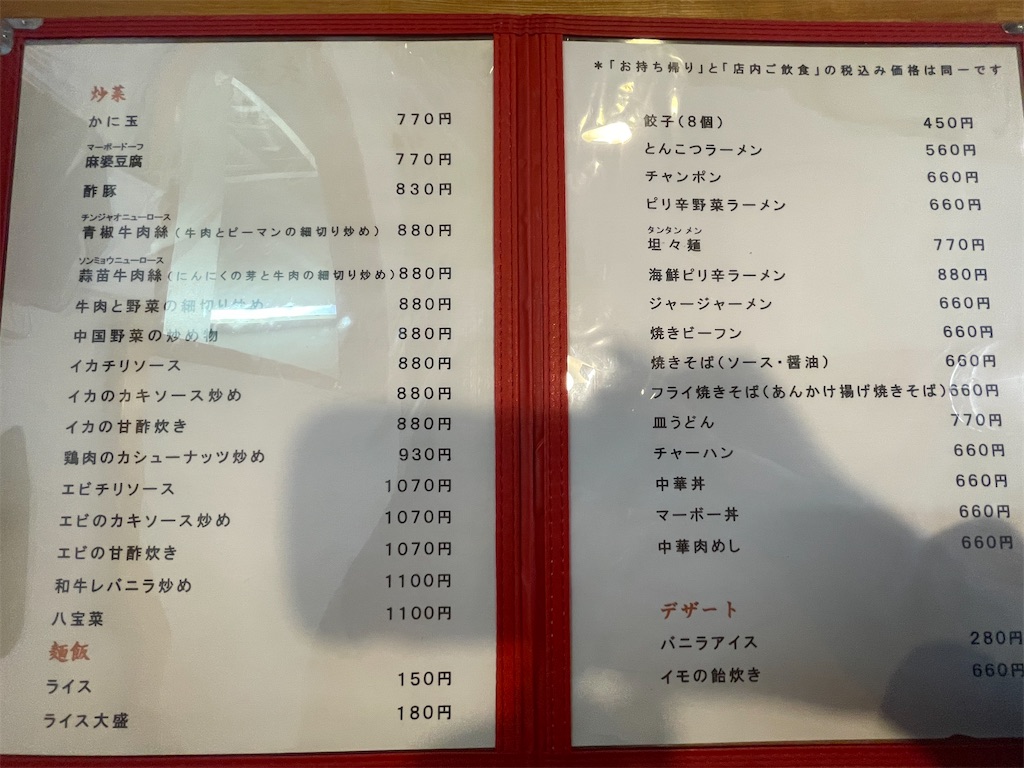 炒菜
かに玉 770円
マーボードーフ
麻婆豆腐 770円
酢豚 830円
チンジャオニューロース
青椒牛肉絲(牛肉とピーマンの細切り炒め) 880円
ソンミョウニューロース
蒜苗牛肉絲(にんにくの芽と牛肉の細切り炒め) 880円
牛肉と野菜の細切り炒め 880円
中国野菜の炒め物 880円
イカチリソース 880円
イカのカキソース炒め 880円
イカの甘酢炊き 880円
鶏肉のカシューナッツ炒め 930円
エビチリソース 1070円
エビのカキソース炒め 1070円
エビの甘酢炊き 1070円
和牛レバニラ炒め 1100円
八宝菜 1100円
麺飯
ライス 150円
ライス大盛 180円
*「お持ち帰り」と「店内ご飲食」の税込み価格は同一です
餃子(8個) 450円
とんこつラーメン 560円
チャンポン 660円
ピリ辛野菜ラーメン 660円
タンタンメン
坦々麺 770円
海鮮ピリ辛ラーメン 880円
ジャージャーメン 660円
焼きビーフン 660円
焼きそば(ソース・醤油) 660円
フライ焼きそば(あんかけ揚げ焼きそば) 660円
皿うどん 770円
チャーハン 660円
中華丼 660円
マーボー丼 660円
中華肉めし 660円
デザート
バニラアイス 280円
イモの飴炊き 660円